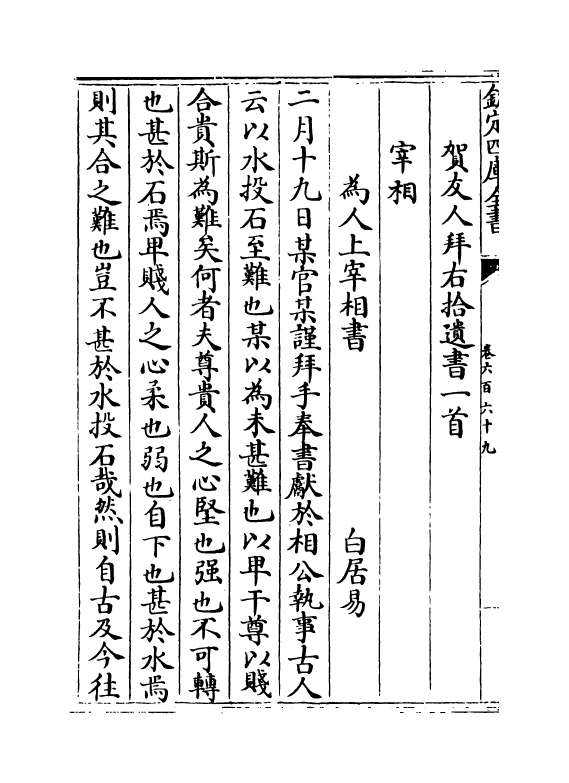 欽定四庫全書
卷六百六十九
賀友人拜右拾遺書一首
宰相
為人上宰相書 白居易
二月十九日某官某謹拜手奉書獻於相公執事古人
云以水投石至難也某以為未甚難也以卑干尊以賤
合貴斯為難矣何者夫尊貴人之心堅也强也不可轉
也甚於石焉卑賤人之心柔也弱也自下也甚於水焉
則其合之難也豈不甚於水投石哉然則自古及今往